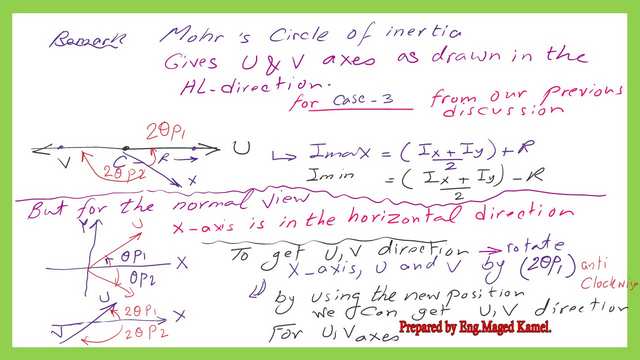 Remark Mohr's Circle of inertia
Gives U & V axes as drawn in the
HL-direction.
for Case-3 from our previous
discussion
2θp1
V C R U
2θp2 X
↳ Imax = (Ix + Iy)/2 + R
Imin = (Ix + Iy)/2 - R
But for the normal view
X-axis is in the horizontal direction
Y U
θp1 X
θp2
To get U,V direction → rotate
X-axis, U and V by (2θp1) anti
Clockwise
by using the new position
we can get U,V direction
For U,V axes
U
2θp1 X
V 2θp2
Prepared by Eng.Maged Kamel.